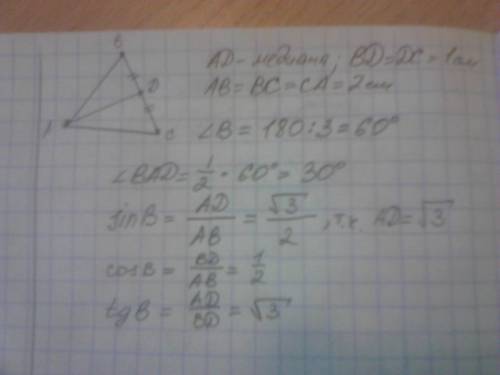 B
AD - медиана; BD=DC=1см
D
AB=BC=CA=2см
A
C
∠B = 180:3=60°
∠BAD= 1/2 · 60°= 30°
sin B = AD/AB = √3/2, т.к. AD=√3
cos B = BD/AB = 1/2
tg B = AD/BD = √3